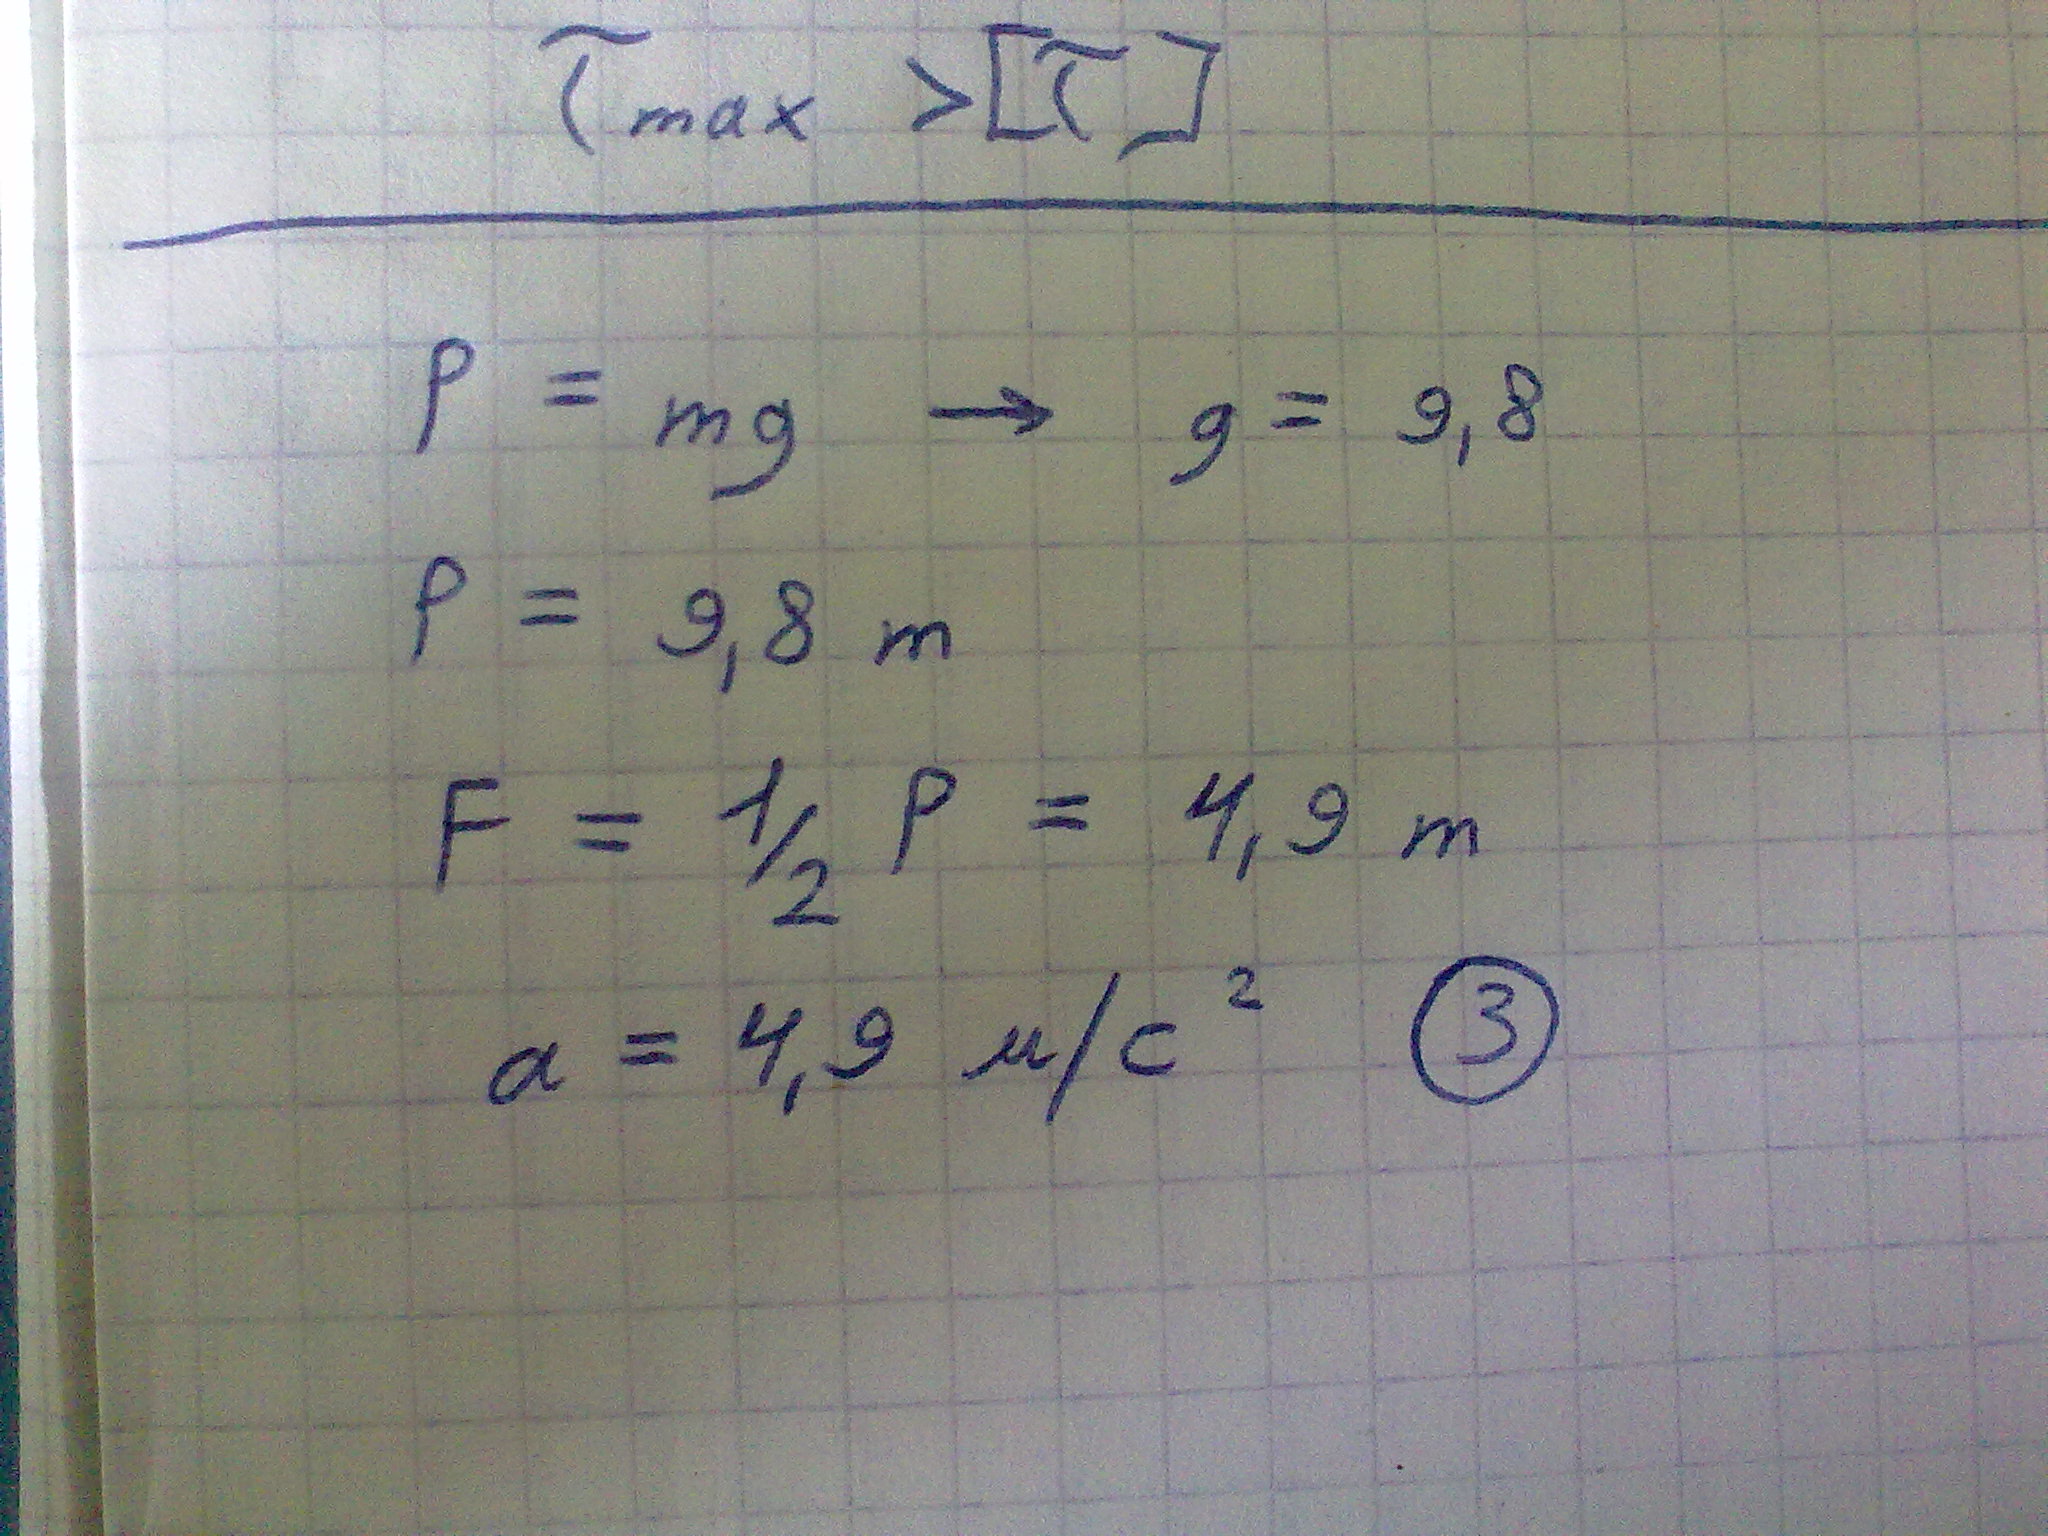 τmax > [τ]
P = mg → g = 9,8
P = 9,8 m
F = 1/2 P = 4,9 m
a = 4,9 м/с² ③